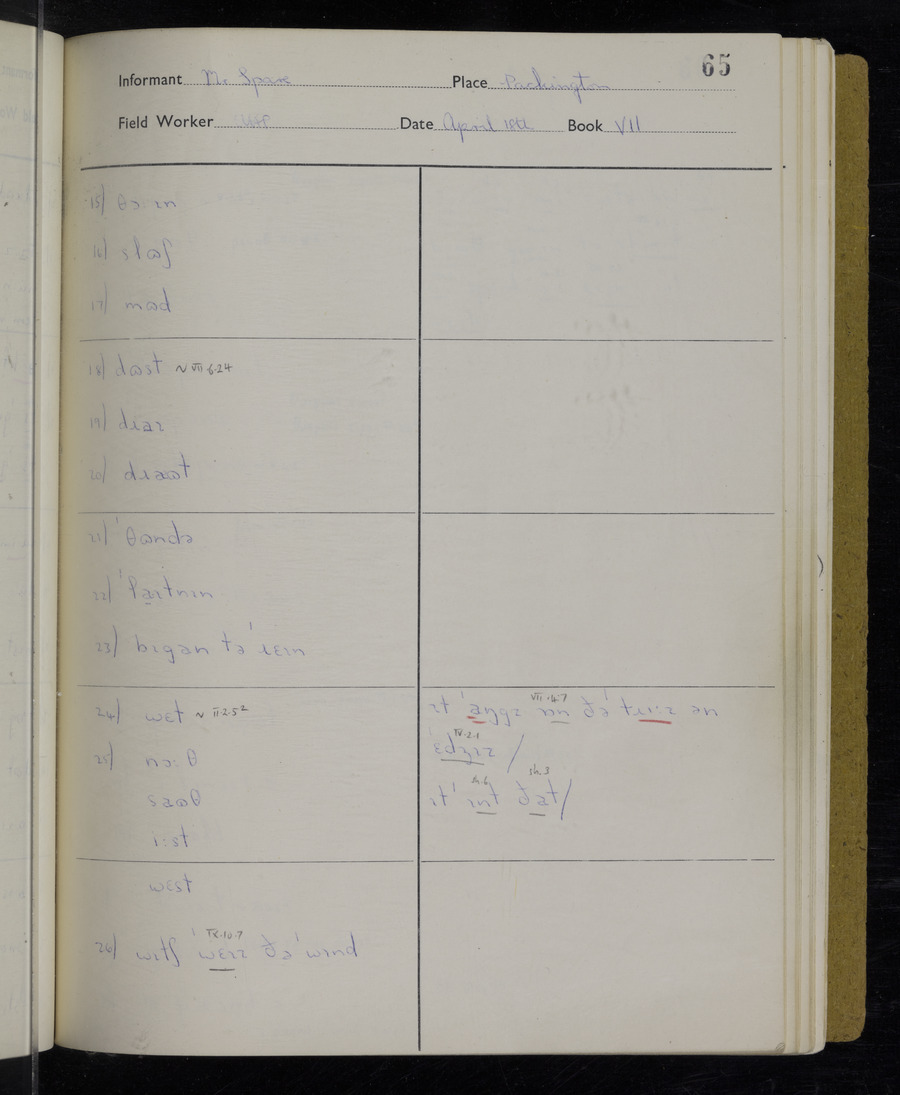 65
Informant Mr Spare Place Packington
Field Worker Date April 18th Book VII
15/ θɔ:ɪn
16/ slɷʃ
17/ mɷd
18/ dɷst ~ VII.6.24
19/ dɹaɪ
20/ dɹaɷt
21/ ˈθɷndə
22/ ˈpaɪtnɪn
23/ bɪgan təˈɹɛɪn
24/ wɛt ~ II.2.5²
25/ nɔ:θ
saɷθ
i:st
wɛst
26/ wɪtʃ ˈwɛɪz ðəˈwɪnd
IX.10.7
VII.4.7
ɪt ˈaŋgz ɪn ðəˈtɹi:z an
IV.2.1
ˈɛdʒɪz /
sh.6 sh.3
ɪtˈ ɪnt ðat/